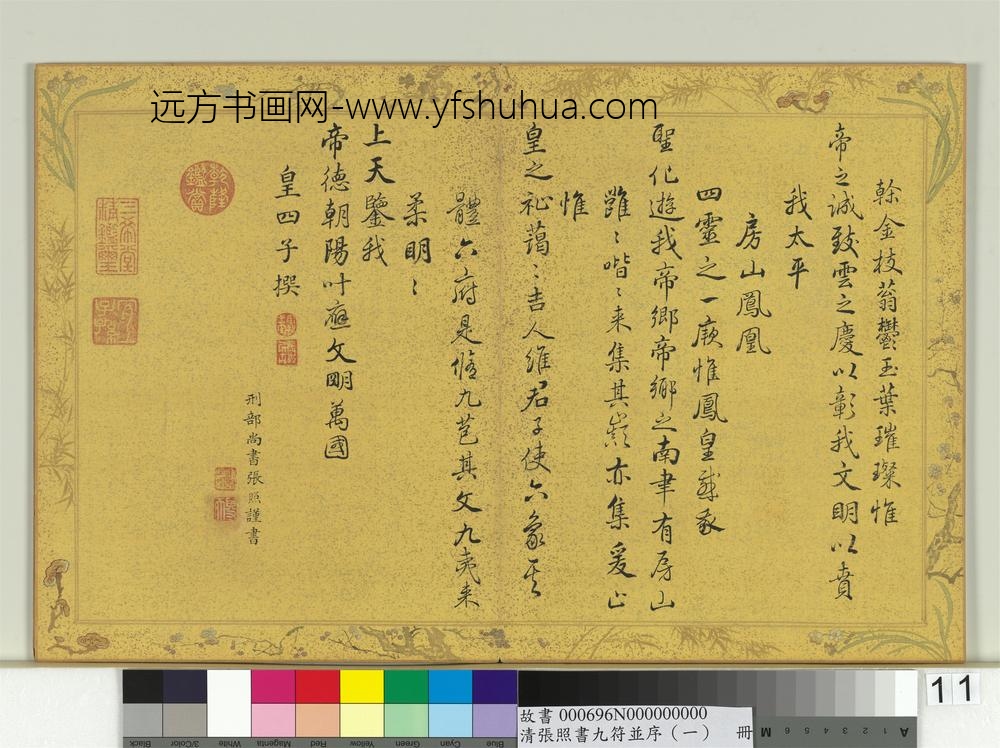 远方书画网-www.yfshuhua.com
榦金枝蓊鬱玉葉璀璨惟
帝之誠致雲之慶以彰我文明以賁
我太平
房山鳳凰
四靈之一厥惟鳳皇
聖化遊我帝鄉帝鄉之南聿有房山
雝〻喈〻来集其巔亦集爰止
惟
皇之祉藹〻吉人維君子使六象
體六府是脩九苞其文九夷来
柔明〻
上天鑒我
帝德朝陽叶應文明萬國
皇四子撰
刑部尚書張照謹書
乾隆鑑賞
三希堂精鑑璽
宜子孫
11
故書 000696N000000000
清張照書九符並序(一) 冊
Black
3/Color
White
Magenta
Red
Yellow
Green
Cyan
Blue
A 1 2 3 4 5 6 M